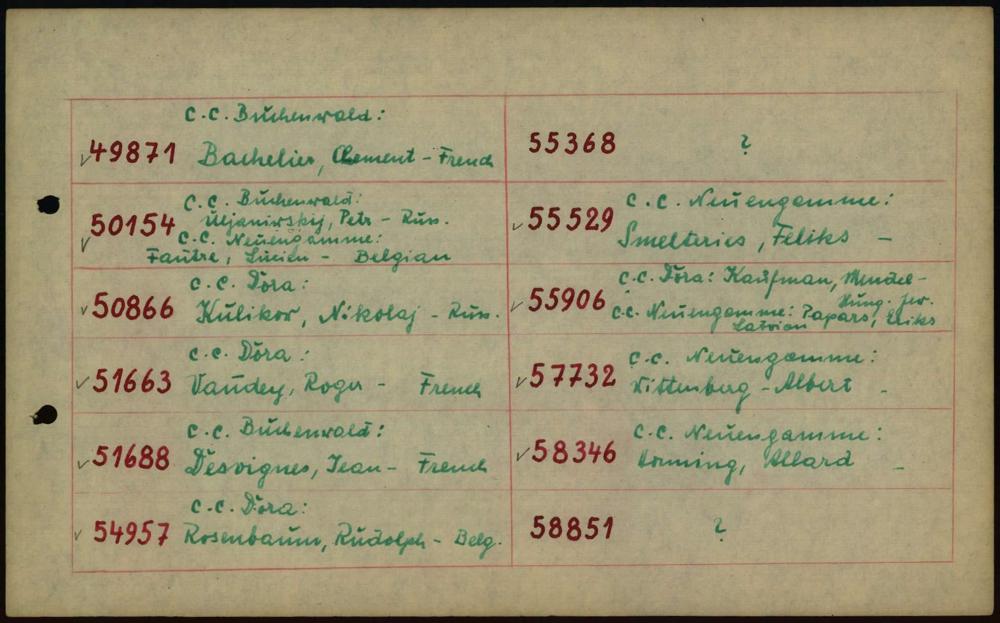 C.C. Buchenwald:
49871 Bachelier, Clement - French
C.C. Buchenwald:
50154 Uljaniwskij, Petr - Russ.
C.C. Neuengamme:
Fautre, Lucien - Belgian
C.C. Dora:
50866 Kulikov, Nikolaj - Russ.
C.C. Dora:
51663 Vaudey, Roger - French
C.C. Buchenwald:
51688 Desvignes, Jean - French
C.C. Dora:
54957 Rosenbaum, Rudolph - Belg.
55368 ?
C.C. Neuengamme:
55529 Smelteries, Feliks -
C.C. Dora: Kaufman, Mendel -
55906 Hung. Jew.
C.C. Neuengamme: Papars, Eriks
Latvian
C.C. Neuengamme:
57732 Wittenberg - Albert -
C.C. Neuengamme:
58346 Allard -
58851 ?